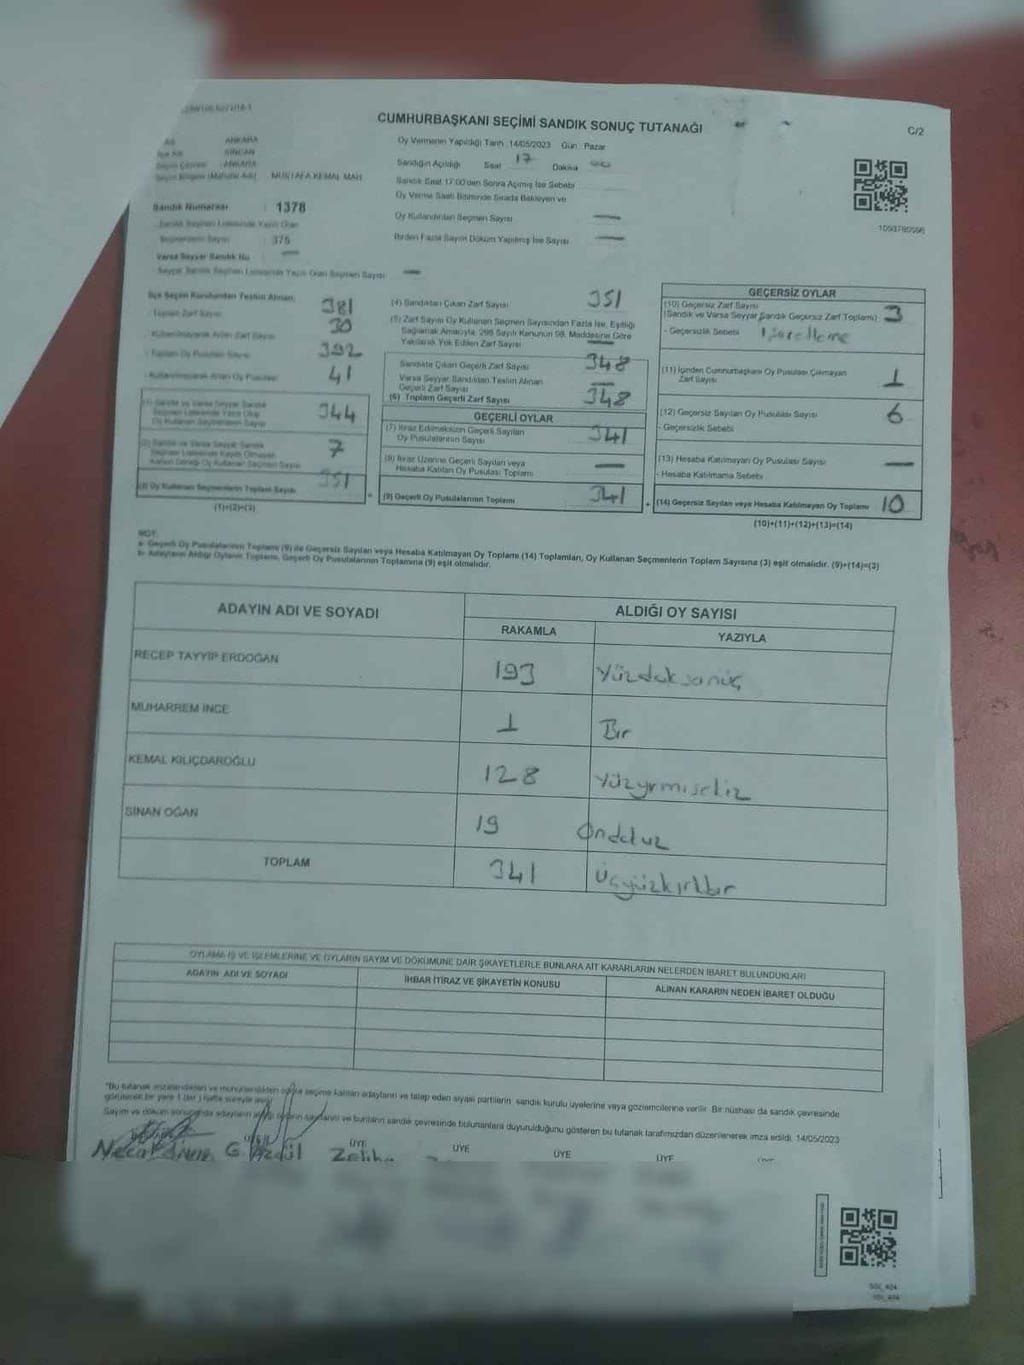 CUMHURBAŞKANI SEÇİMİ SANDIK SONUÇ TUTANAĞI
C/2
İli ANKARA
İlçe Adı SİNCAN
Seçim Çevresi ANKARA
MUSTAFA KEMAL MAH.
Oy Vermenin Yapıldığı Tarih 14/05/2023 Gün: Pazar
Sandığın Açıldığı Saat 17 Dakika
Sandık Saat 17:00'den Sonra Açılmış İse Sebebi
Oy Verme Saati Bitiminde Sırada Bekleyen ve
Oy Kullandırılan Seçmen Sayısı —
Birden Fazla Sayım Döküm Yapılmış İse Sayısı —
Sandık Numarası : 1378
Sandık Seçmen Listesinde Yazılı Olan
Seçmenlerin Sayısı : 375
Varsa Seyyar Sandık No —
Seyyar Sandık Seçmen Listesinde Yazılı Olan Seçmen Sayısı —
İlçe Seçim Kurulundan Teslim Alınan;
- Toplam Zarf Sayısı 381
- Kullanılmayarak Artan Zarf Sayısı 30
- Toplam Oy Pusulası Sayısı 392
- Kullanılmayarak Artan Oy Pusulası 41
(1) Sandık ve Varsa Seyyar Sandık
Seçmen Listesinde Yazılı Olup
Oy Kullanan Seçmenlerin Sayısı 344
(2) Sandık ve Varsa Seyyar Sandık
Seçmen Listesinde Kaydı Olmayan
Kanun Gereği Oy Kullanan Seçmen Sayısı 7
(3) Oy Kullanan Seçmenlerin Toplam Sayısı 351
(1)+(2)=(3)
(4) Sandıktan Çıkan Zarf Sayısı 351
(5) Zarf Sayısı Oy Kullanan Seçmen Sayısından Fazla İse, Eşitliği
Sağlamak Amacıyla, 298 Sayılı Kanunun 98. Maddesine Göre
Yakılarak Yok Edilen Zarf Sayısı —
Sandıkta Çıkan Geçerli Zarf Sayısı 348
Varsa Seyyar Sandıktan Teslim Alınan
Geçerli Zarf Sayısı —
(6) Toplam Geçerli Zarf Sayısı 348
GEÇERLİ OYLAR
(7) İtiraz Edilmeksizin Geçerli Sayılan
Oy Pusulalarının Sayısı 341
(8) İtiraz Üzerine Geçerli Sayılan veya
Hesaba Katılan Oy Pusulası Toplamı —
(9) Geçerli Oy Pusulalarının Toplamı 341
GEÇERSİZ OYLAR
(10) Geçersiz Zarf Sayısı
(Sandık ve Varsa Seyyar Sandık Geçersiz Zarf Toplamı) 3
- Geçersizlik Sebebi İşaretleme
(11) İçinden Cumhurbaşkanı Oy Pusulası Çıkmayan
Zarf Sayısı 1
(12) Geçersiz Sayılan Oy Pusulası Sayısı 6
- Geçersizlik Sebebi
(13) Hesaba Katılmayan Oy Pusulası Sayısı —
- Hesaba Katılmama Sebebi
(14) Geçersiz Sayılan veya Hesaba Katılmayan Oy Toplamı 10
(10)+(11)+(12)+(13)=(14)
NOT:
a- Geçerli Oy Pusulalarının Toplamı (9) ile Geçersiz Sayılan veya Hesaba Katılmayan Oy Toplamı (14) Toplamları, Oy Kullanan Seçmenlerin Toplam Sayısına (3) eşit olmalıdır. (9)+(14)=(3)
b- Adayların Aldığı Oyların Toplamı, Geçerli Oy Pusulalarının Toplamına (9) eşit olmalıdır.
ADAYIN ADI VE SOYADI ALDIĞI OY SAYISI
RAKAMLA YAZIYLA
RECEP TAYYİP ERDOĞAN 193 Yüzdoksanüç
MUHARREM İNCE 1 Bir
KEMAL KILIÇDAROĞLU 128 Yüzyirmisekiz
SİNAN OĞAN 19 Ondokuz
TOPLAM 341 Üçyüzkırkbir
OYLAMA İŞ VE İŞLEMLERİNE VE OYLARIN SAYIM VE DÖKÜMÜNE DAİR ŞİKAYETLERLE BUNLARA AİT KARARLARIN NELERDEN İBARET BULUNDUKLARI
ADAYIN ADI VE SOYADI İHBAR İTİRAZ VE ŞİKAYETİN KONUSU ALINAN KARARIN NEDEN İBARET OLDUĞU
"Bu tutanak imzalandıktan ve mühürlendikten sonra seçime katılan adayların ve talep eden siyasi partilerin sandık kurulu üyelerine veya gözlemcilerine verilir. Bir nüshası da sandık çevresinde
görülecek bir yere 1 (bir) hafta süreyle asılır.
Sayım ve döküm sonucunda adayların aldığı oyların sayılarını ve bunların sandık çevresinde bulunanlara duyurulduğunu gösteren bu tutanak tarafımızdan düzenlenerek imza edildi. 14/05/2023
ÜYE ÜYE ÜYE ÜYE
Zeliha